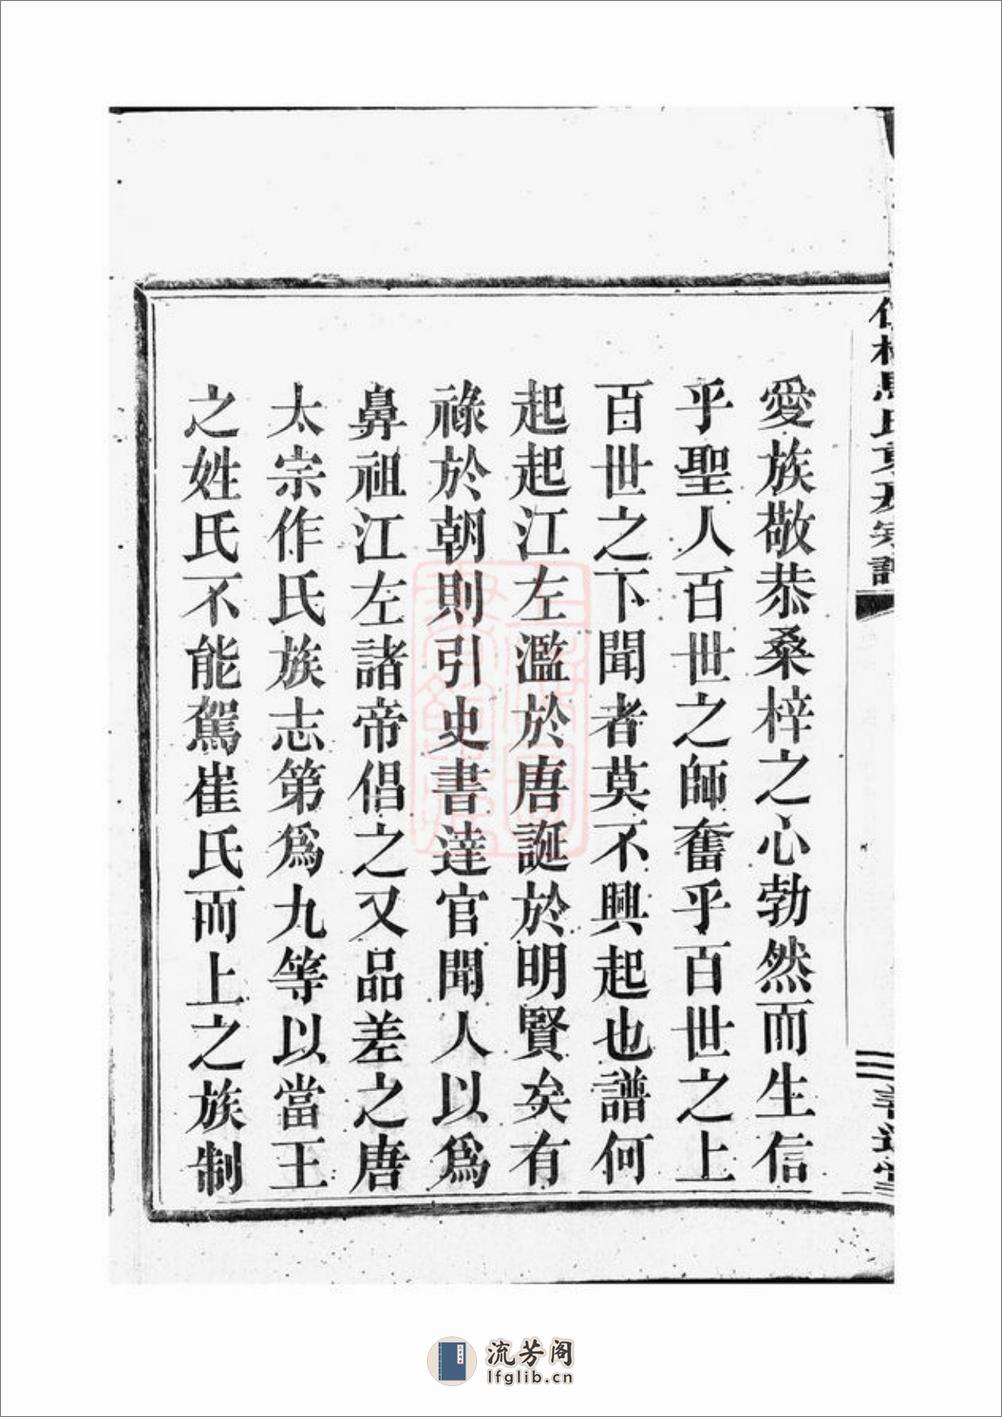 愛族敬恭桑梓之心勃然而生信
乎聖人百世之師奮乎百世之上
百世之下聞者莫不興起也譜何
起起江左濫於唐誕於明賢矣有
祿於朝則引史書達官聞人以爲
鼻祖江左諸帝倡之又品差之唐
太宗作氏族志第爲九等以當王
之姓氏不能駕崔氏而上之族制
流芳阁
lfglib.cn